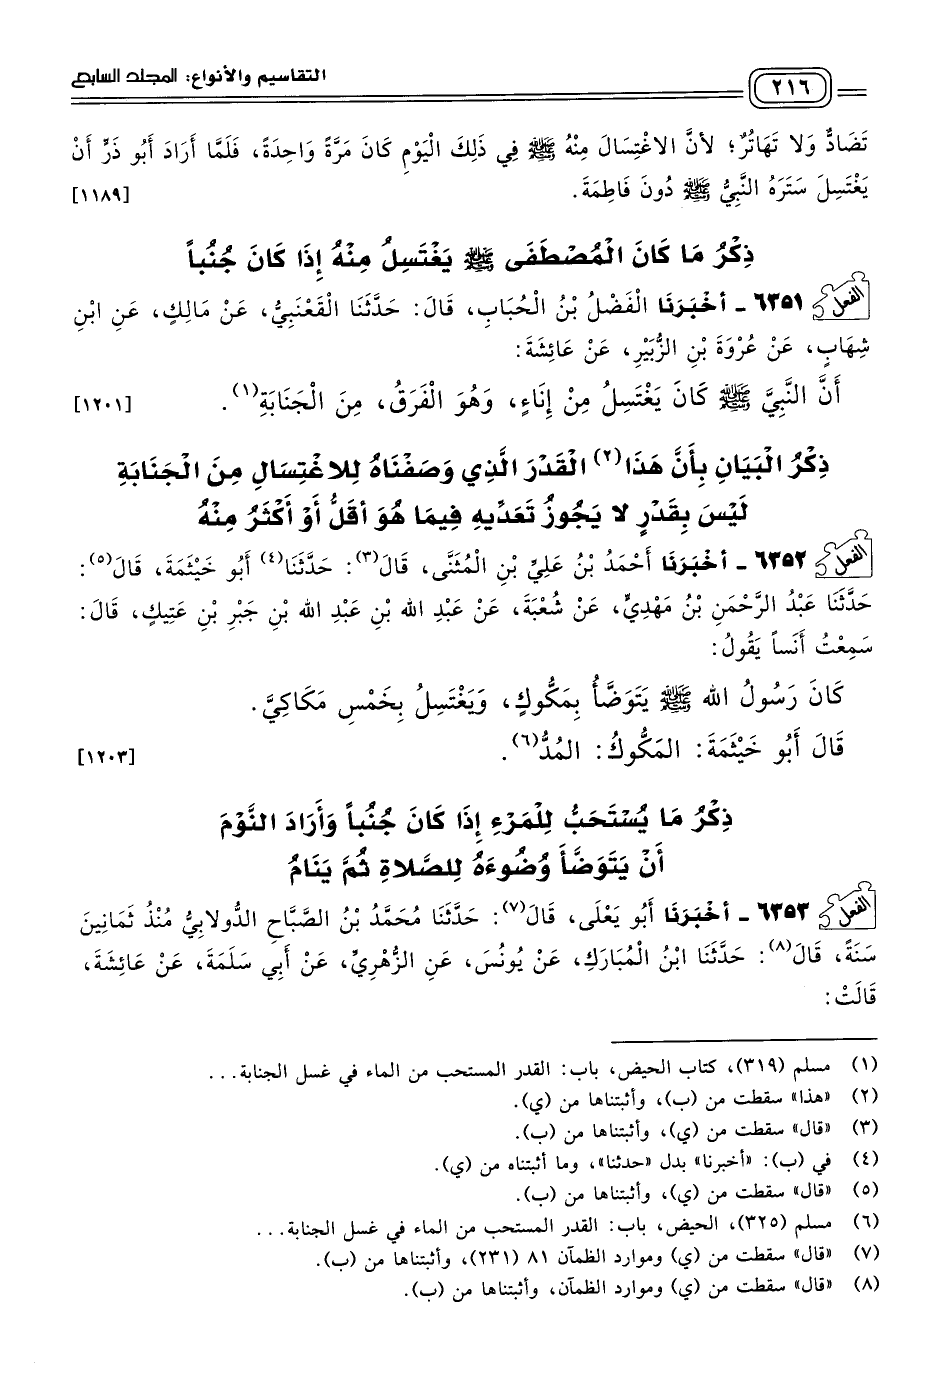 ٢١٦ التقاسيم والأنواع: المجلد السابع
تَضَادٌّ وَلا تَهَاتُرٌ؛ لأنَّ الاغْتِسَالَ مِنْهُ ﷺ فِي ذَلِكَ الْيَوْمِ كَانَ مَرَّةً وَاحِدَةً، فَلَمَّا أَرَادَ أَبُو ذَرٍّ أَنْ
يَغْتَسِلَ سَتَرَهُ النَّبِيُّ ﷺ دُونَ فَاطِمَةَ. [١١٨٩]
ذِكْرُ مَا كَانَ الْمُصْطَفَى ﷺ يَغْتَسِلُ مِنْهُ إِذَا كَانَ جُنُباً
الفعل ٦٣٥١ - أخْبَرَنَا الْفَضْلُ بْنُ الْحُبَابِ، قَالَ: حَدَّثَنَا الْقَعْنَبِيُّ، عَنْ مَالِكٍ، عَنِ ابْنِ
شِهَابٍ، عَنْ عُرْوَةَ بْنِ الزُّبَيْرِ، عَنْ عَائِشَةَ:
أَنَّ النَّبِيَّ ﷺ كَانَ يَغْتَسِلُ مِنْ إِنَاءٍ، وَهُوَ الْفَرَقُ، مِنَ الْجَنَابَةِ(١). [١٢٠١]
ذِكْرُ الْبَيَانِ بِأَنَّ هَذَا(٢) الْقَدْرَ الَّذِي وَصَفْنَاهُ لِلاغْتِسَالِ مِنَ الْجَنَابَةِ
لَيْسَ بِقَدْرٍ لا يَجُوزُ تَعَدِّيهِ فِيمَا هُوَ أقَلُّ أَوْ أَكْثَرُ مِنْهُ
الفعل ٦٣٥٢ - أخْبَرَنَا أَحْمَدُ بْنُ عَلِيِّ بْنِ الْمُثَنَّى، قَالَ(٣): حَدَّثَنَا(٤) أَبُو خَيْثَمَةَ، قَالَ(٥):
حَدَّثَنَا عَبْدُ الرَّحْمَنِ بْنُ مَهْدِيٍّ، عَنْ شُعْبَةَ، عَنْ عَبْدِ الله بْنِ عَبْدِ الله بْنِ جَبْرِ بْنِ عَتِيكٍ، قَالَ:
سَمِعْتُ أَنَساً يَقُولُ:
كَانَ رَسُولُ الله ﷺ يَتَوَضَّأُ بِمَكُّوكٍ، وَيَغْتَسِلُ بِخَمْسِ مَكَاكِيَّ.
قَالَ أَبُو خَيْثَمَةَ: المَكُّوكُ: المُدُّ(٦). [١٢٠٣]
ذِكْرُ مَا يُسْتَحَبُّ لِلْمَرْءِ إِذَا كَانَ جُنُباً وَأَرَادَ النَّوْمَ
أَنْ يَتَوَضَّأَ وُضُوءَهُ لِلصَّلاةِ ثُمَّ يَنَامُ
الفعل ٦٣٥٣ - أخْبَرَنَا أَبُو يَعْلَى، قَالَ(٧): حَدَّثَنَا مُحَمَّدُ بْنُ الصَّبَّاحِ الدُّولابِيُّ مُنْذُ ثَمَانِينَ
سَنَةً، قَالَ(٨): حَدَّثَنَا ابْنُ الْمُبَارَكِ، عَنْ يُونُسَ، عَنِ الزُّهْرِيِّ، عَنْ أَبِي سَلَمَةَ، عَنْ عَائِشَةَ،
قَالَتْ:
(١) مسلم (٣١٩)، كتاب الحيض، باب: القدر المستحب من الماء في غسل الجنابة...
(٢) «هذا» سقطت من (ب)، وأثبتناها من (ي).
(٣) «قال» سقطت من (ي)، وأثبتناها من (ب).
(٤) في (ب): «أخبرنا» بدل «حدثنا»، وما أثبتناه من (ي).
(٥) «قال» سقطت من (ي)، وأثبتناها من (ب).
(٦) مسلم (٣٢٥)، الحيض، باب: القدر المستحب من الماء في غسل الجنابة...
(٧) «قال» سقطت من (ي) وموارد الظمآن ٨١ (٢٣١)، وأثبتناها من (ب).
(٨) «قال» سقطت من (ي) وموارد الظمآن، وأثبتناها من (ب).